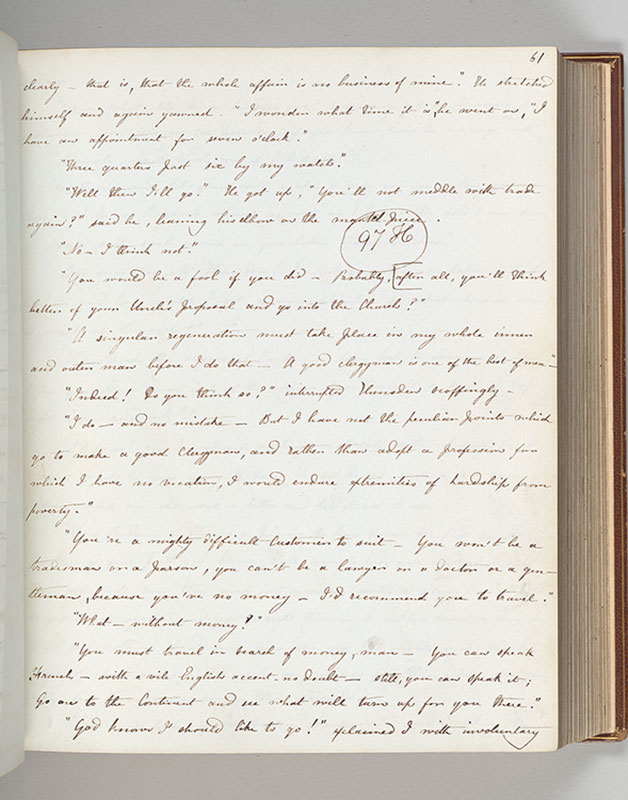 61
clearly - that is, that the whole affair is no business of mine." He stretched
himself and again yawned. "I wonder what time it is", he went on, "I
have an appointment for seven o'clock."
"Three quarters past six by my watch".
"Well then I'll go." He got up, "You'll not meddle with trade
again?" said he, leaning his elbow on the mantel piece.
97 H
"No - I think not."
"You would be a fool if you did - Probably, after all, you'll think
better of your Uncle's proposal and go into the Church?"
"A singular regeneration must take place in my whole inner
and outer man before I do that - A good clergyman is one of the best of men"-
"Indeed! Do you think so?" interrupted Hunsden scoffingly -
"I do - and no mistake - But I have not the peculiar points which
go to make a good Clergyman, and rather than adopt a profession for
which I have no vocation, I would endure extremities of hardship from
poverty."
"You're a mighty difficult customer to suit - You won't be a
tradesman or a parson, you can't be a lawyer or a doctor or a gen-
tleman, because you've no money - I'd recommend you to travel."
"What - without money?"
"You must travel in search of money, man - You can speak
French - with a vile English accent, no doubt - still, you can speak it;
Go on to the Continent and see what will turn up for you there."
"God knows I should like to go!" exclaimed I with involuntary